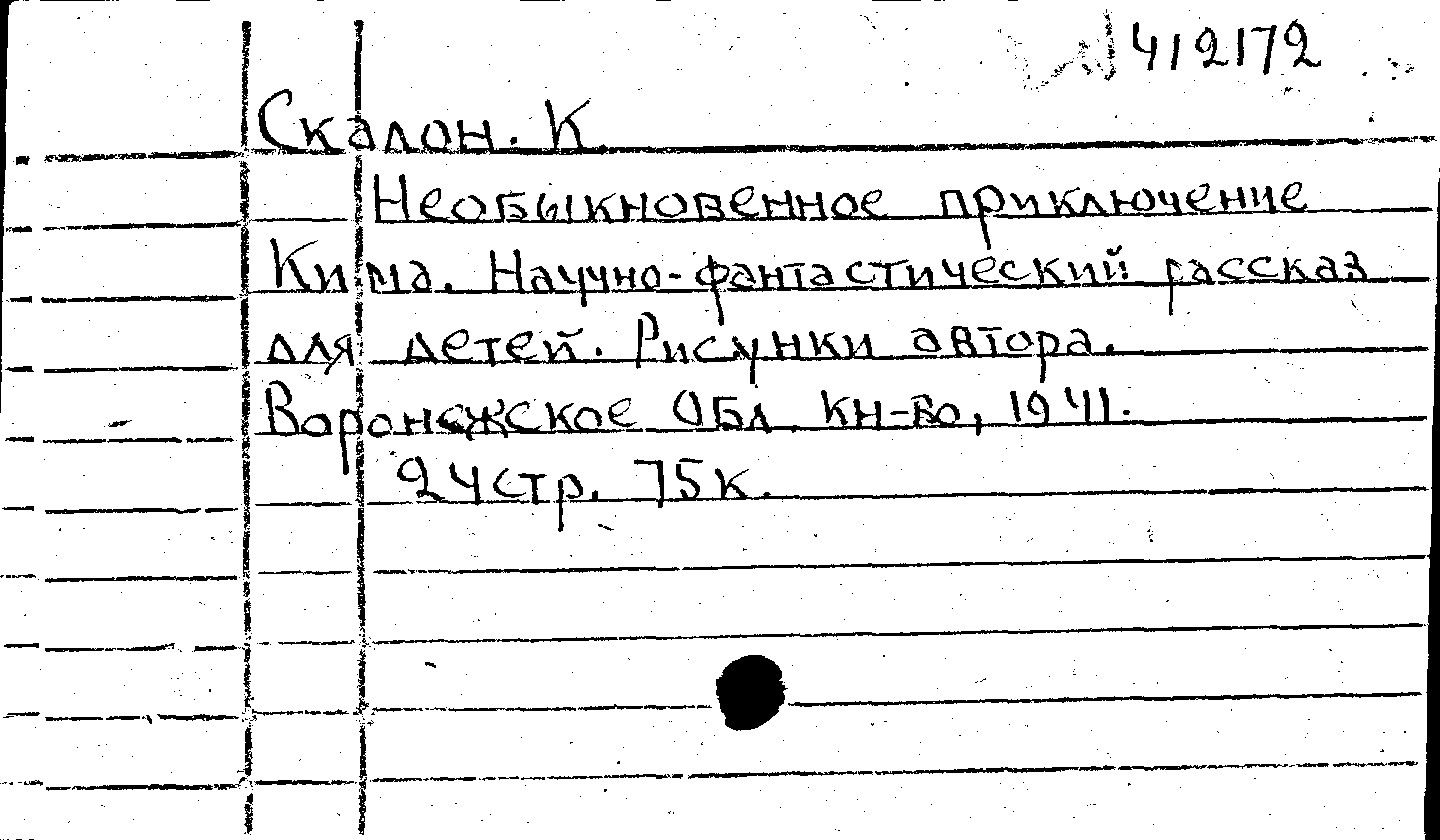 412172
Скалон. К.
Необыкновенное приключение
Кима. Научно-фантастический рассказ
для детей. Рисунки автора.
Воронежское Обл. кн-во, 1941.
24 стр. 75 к.